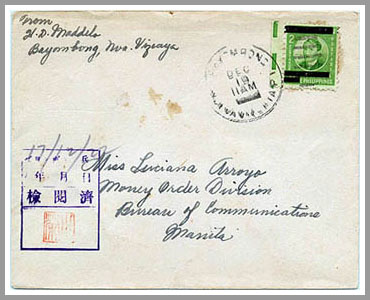 From
H. D. Maddela
Bayombong, Nva. Vizcaya
BAYOMBONG
DEC
19
11 AM
2
PHILIPPINES
年 月 日
檢閲濟
Miss Luciana Arroyo
Money Order Division
Bureau of Communications
Manila